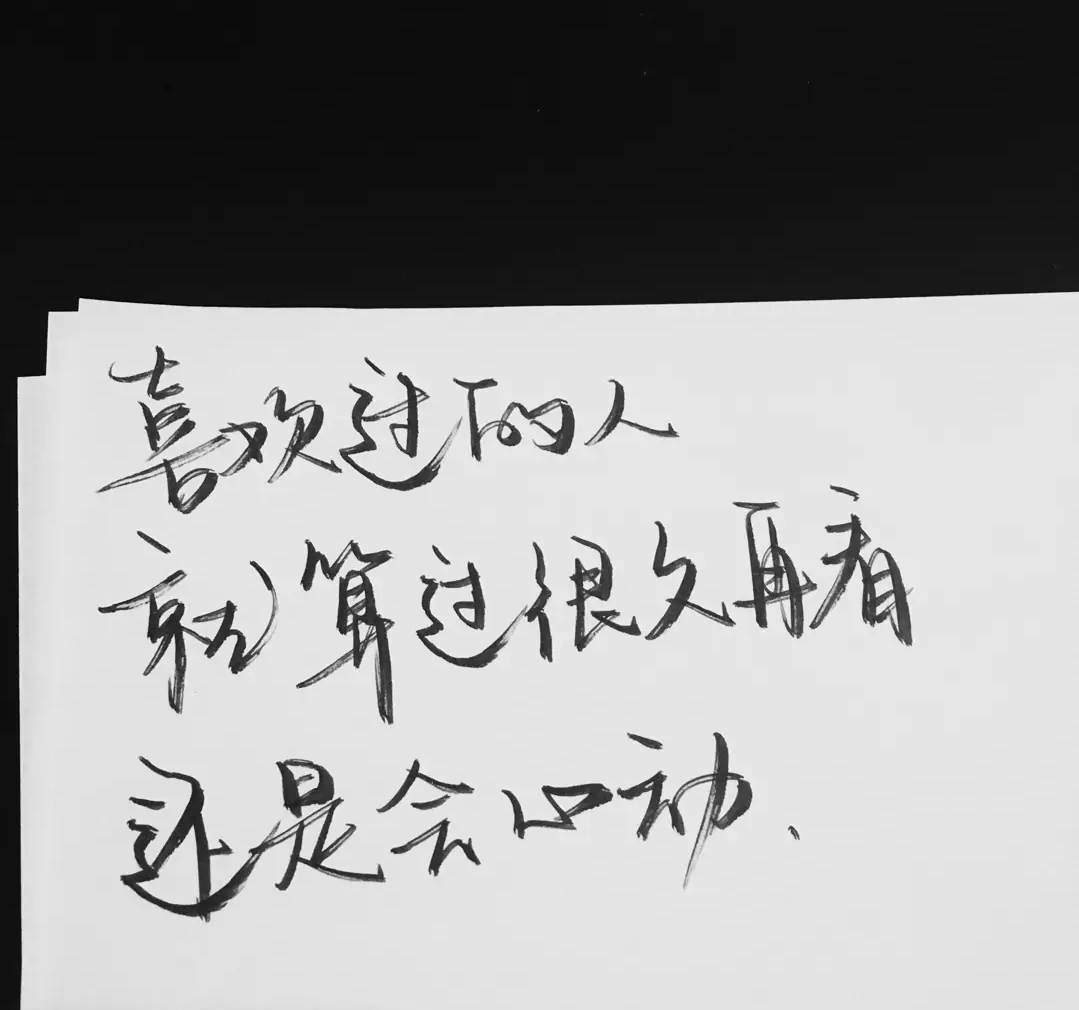 喜欢过的人
就算过很久再看
还是会心动、